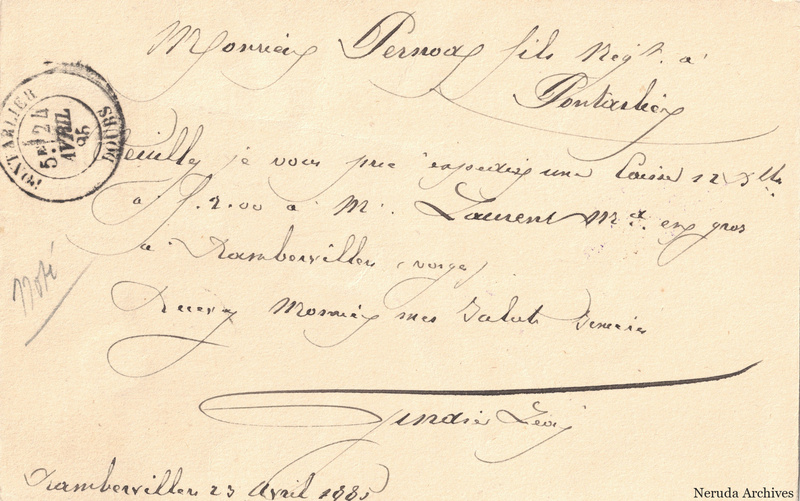 Monsieur Pernod fils Negt. à
Pontarlier
PONTARLIER
DOUBS
5E 24
AVRIL
95
Veuillez je vous prie expedier une Caisse 12 Blles
à f. 2.00 à Mr. Laurent Md. en gros
à Rambervillers (vosges)
Noté
Recevez Monsieur mes Saluts Sincères
Rambervillers 23 Avril 1885
Neruda Archives